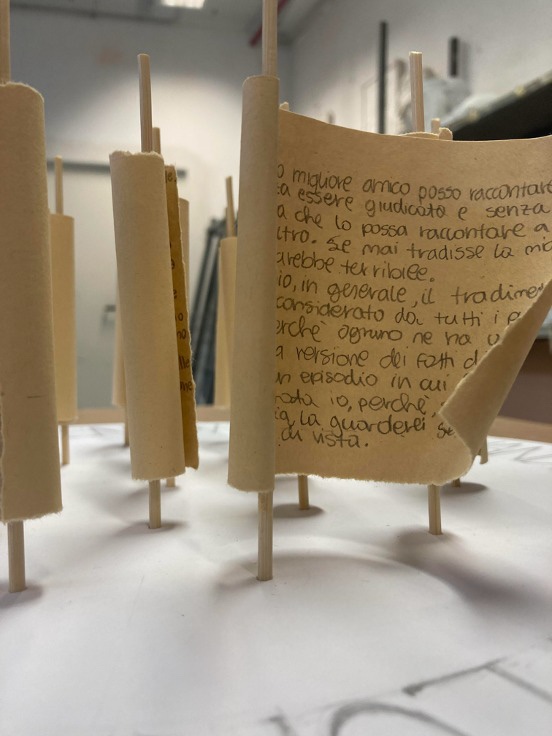 o migliore amico posso raccontare
ta essere giudicata e senza
a che lo possa raccontare a
ltro. Se mai tradisse la mia
arebbe terribilee.
io, in generale, il tradime
considerato da tutti i
erchè ognuno ne ha u
a versione dei fatti d
un episodio in cui
io, perchè,
la guarderei se
di vista.